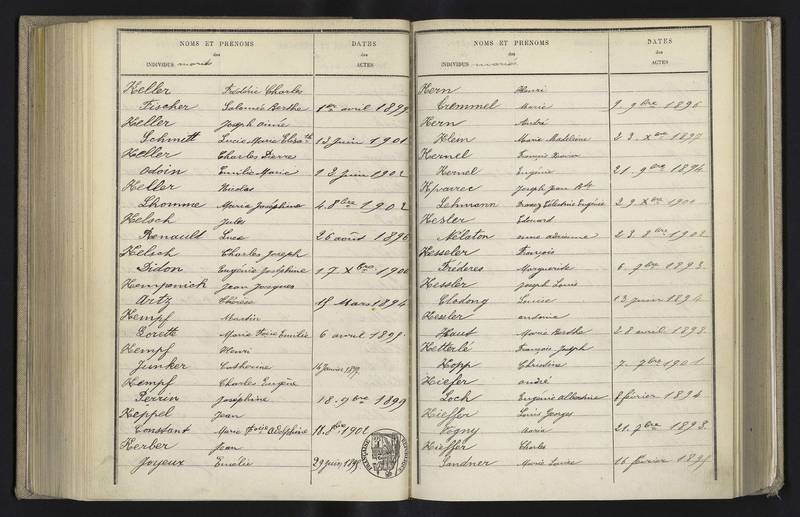 NOMS ET PRÉNOMS
des
INDIVIDUS mariés
DATES
des
ACTES
Keller Frédéric Charles
Fischer Salomée Berthe 1er avril 1899
Keller Joseph Aimée
Schmitt Lucie Marie Elisa th 13 juin 1901
Keller Charles Pierre
Odoin Emilie Marie 23 juin 1902
Keller Nicolas
Lhomme Marie Joséphine 4. 8bre 1902
Kelsch Jules
Renault Luce 26 août 1896
Kelsch Charles Joseph
Didon Eugénie Joséphine 17 Xbre 1900
Kempenick Jean Jacques
Artz Thérèse 15 Mars 1894
Kempf Martin
Lorette Marie Emilie 6 avril 1899
Kempf Henri
Junker Catherine 16 Janvier 1899
Kempf Charles Eugène
Perrin Joséphine 18. 9bre 1899
Keppel Jean
Constant Marie Adolphine 18. 8bre 1902
Kerber Jean
Joyeux Emélie 29 juin
NOMS ET PRÉNOMS
des
INDIVIDUS mariés
DATES
des
ACTES
Kern Henri
Cremmel Marie 9. 9bre 1896
Kern André
Klem Marie Madeleine 23. Xbre 1897
Kernel François Xavier
Kernel Eugénie 21. 9bre 1894
Joseph Jean Bte
Lehmann Célestine Eugénie 29. Xbre 1900
Kesler Edouard
Nélaton anne adrienne 23. 8bre 1902
Kesseler François
Fréderes Marguerite 6. 9bre 1893
Kessler Joseph Louis
Clodong Louise 13 juin 1894
Kessler antoine
Haut Marie Berthe 28 avril 1893
Ketterlé François Joseph
Hopp Christine 7. 7bre 1901
Kiefer andré
Loch Eugénie Albertine 8 février 1894
Kieffer Louis Georges
Vogny Maria 21. 7bre 1893
Kieffer Charles
Sandner Marie Louise 16 février